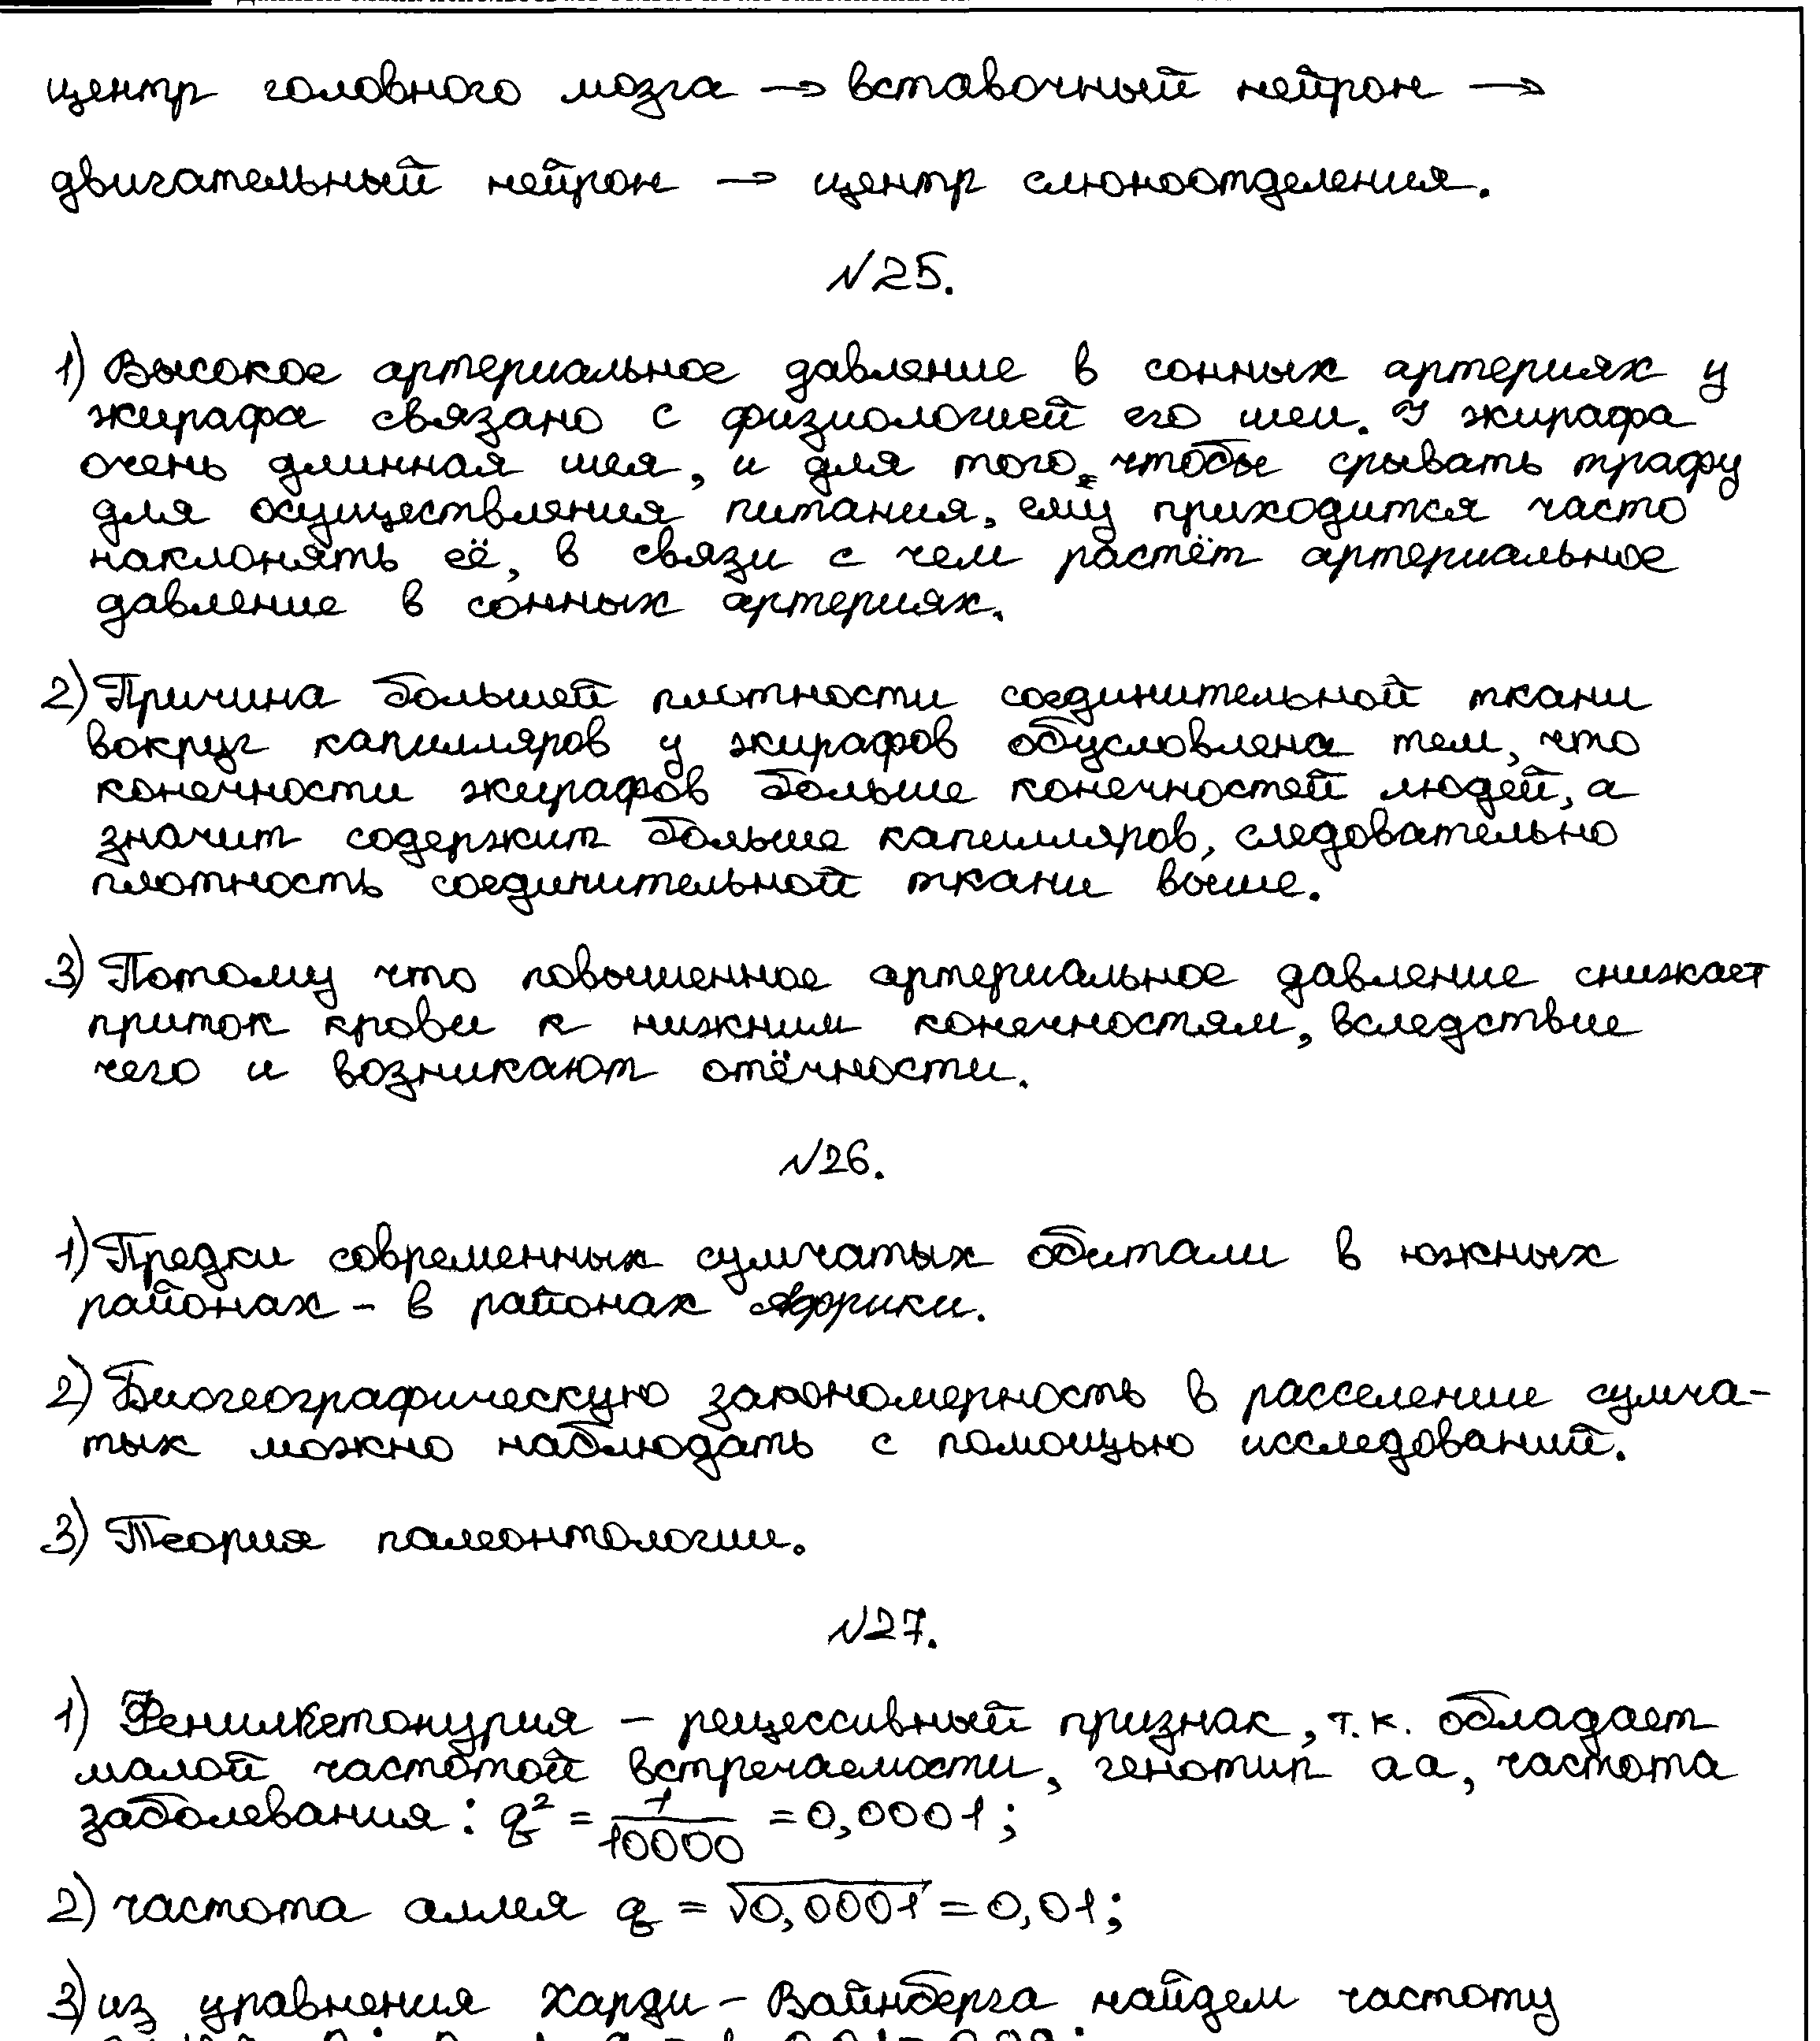 центр головного мозга → вставочный нейрон →
двигательный нейрон → центр слюноотделения.
№25.
1) Высокое артериальное давление в сонных артериях у
жирафа связано с физиологией его шеи. У жирафа
очень длинная шея, и для того, чтобы срывать трафу
для осуществления питания, ему приходится часто
наклонять её, в связи с чем растёт артериальное
давление в сонных артериях.
2) Причина большей плотности соединительной ткани
вокруг капилляров у жирафов обусловлена тем, что
конечности жирафов больше конечностей людей, а
значит содержит больше капилляров, следовательно
плотность соединительной ткани выше.
3) Потому что повышенное артериальное давление снижает
приток крови к нижним конечностям, вследствие
чего и возникают отёчности.
№26.
1) Предки современных сумчатых обитали в южных
районах - в районах Африки.
2) Биогеографическую закономерность в расселении сумча-
тых можно наблюдать с помощью исследований.
3) Теория палеонтологии.
№27.
1) Фенилкетонурия - рецессивный признак, т.к. обладает
малой частотой встречаемости, генотип аа, частота
заболевания: q² = 1/10000 = 0,0001;
2) частота аллея q = √0,0001 = 0,01;
3) из уравнения Харди - Вайнберга найдем частоту